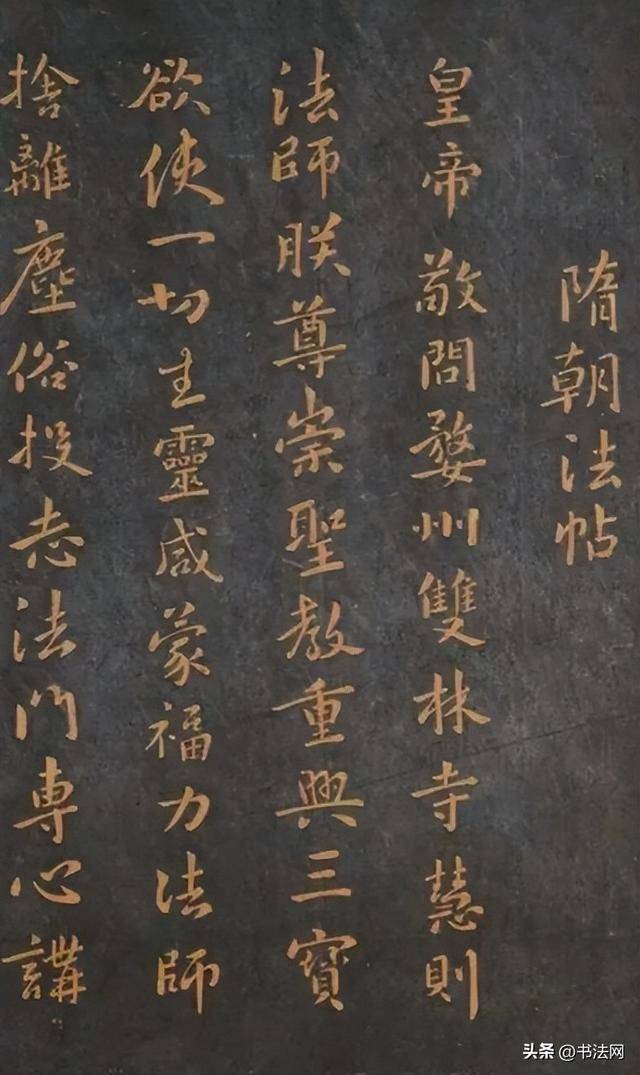 隋朝法帖
皇帝敬問婺州雙林寺慧則
法師朕尊崇聖教重興三寶
欲使一切生靈咸蒙福力法師
捨離塵俗投志法門專心講
头条 @书法网